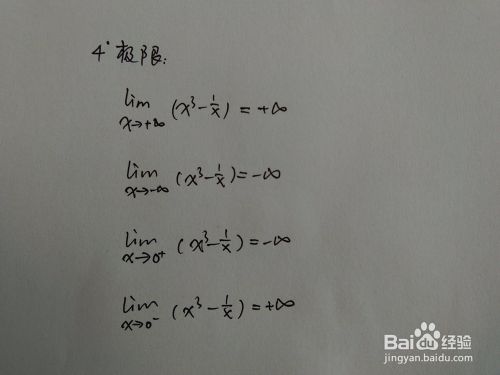 4° 极限:
lim x→+∞ (x³-1/x) = +∞
lim x→-∞ (x³-1/x) = -∞
lim x→0⁺ (x³-1/x) = -∞
lim x→0⁻ (x³-1/x) = +∞
Baidu 经验
jingyan.baidu.com